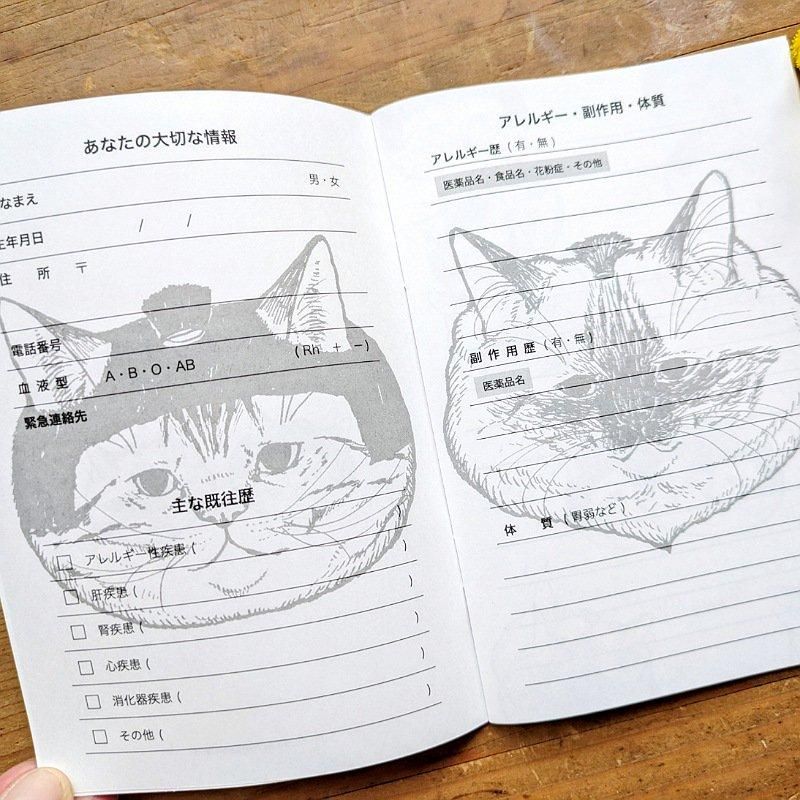 あなたの大切な情報
なまえ 男・女
生年月日 / /
住 所 〒
電話番号
血液型 A・B・O・AB (Rh + −)
緊急連絡先
主な既往歴
アレルギー性疾患 ( )
肝疾患 ( )
腎疾患 ( )
心疾患 ( )
消化器疾患 ( )
その他 (
アレルギー・副作用・体質
アレルギー歴 (有・無)
医薬品名・食品名・花粉症・その他
副作用歴 (有・無)
医薬品名
体 質 (胃弱など)